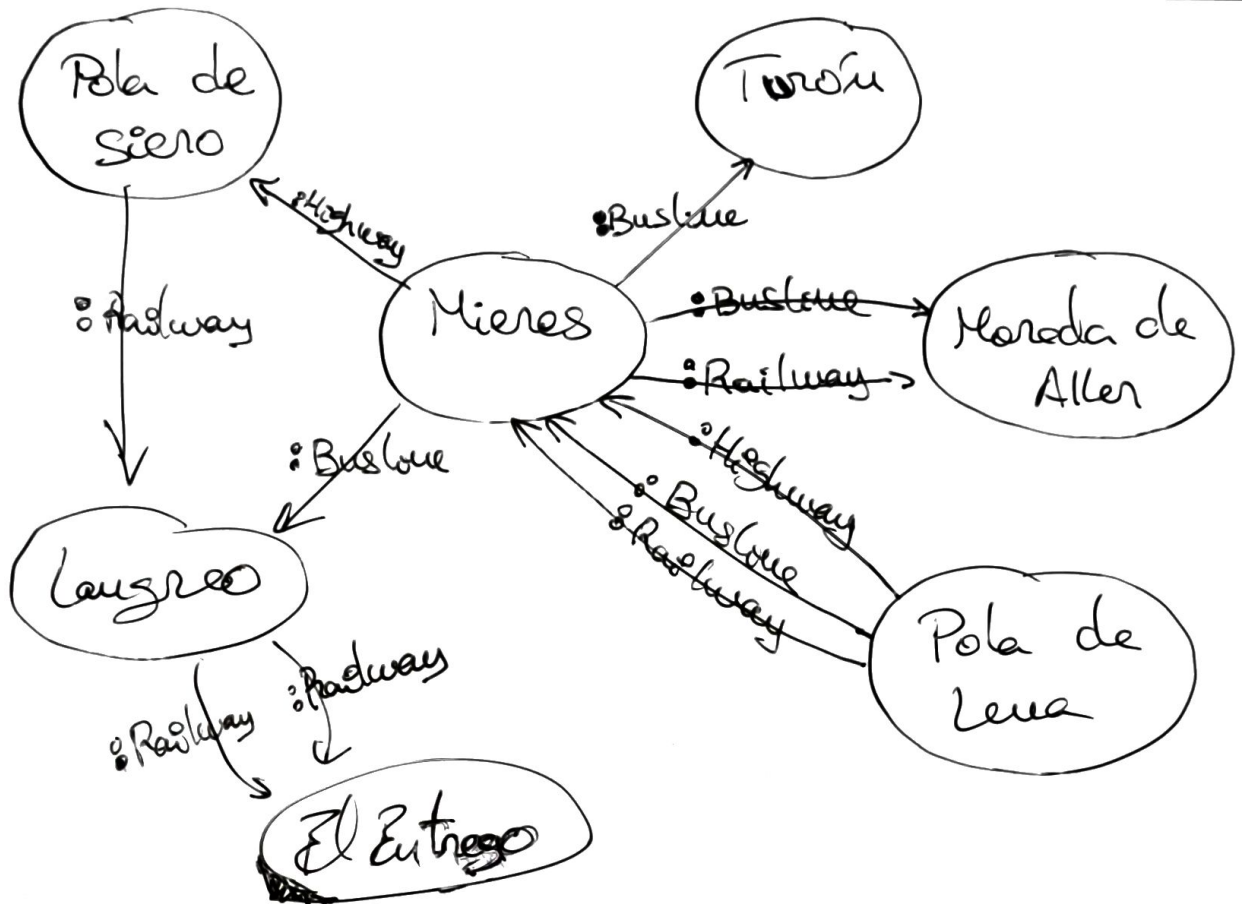 Pola de
Siero
Turón
:Highway
:Busline
:Railway
Mieres
:Busline
Moreda de
Aller
:Railway
:Highway
:Busline
:Busline
:Railway
Langreo
Pola de
Lena
:Railway
:Railway
El Entrego